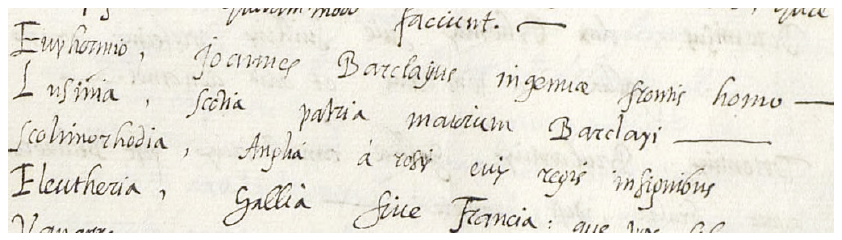 faciunt. —
Euphormio, Joannes Barclajus ingenuæ frontis homo —
Lusinia, Scotia patria maiorum Barclayi —
Scolimorhodia, Anglia à rosis eius regis insignibus
Eleutheria, Gallia sive Francia: